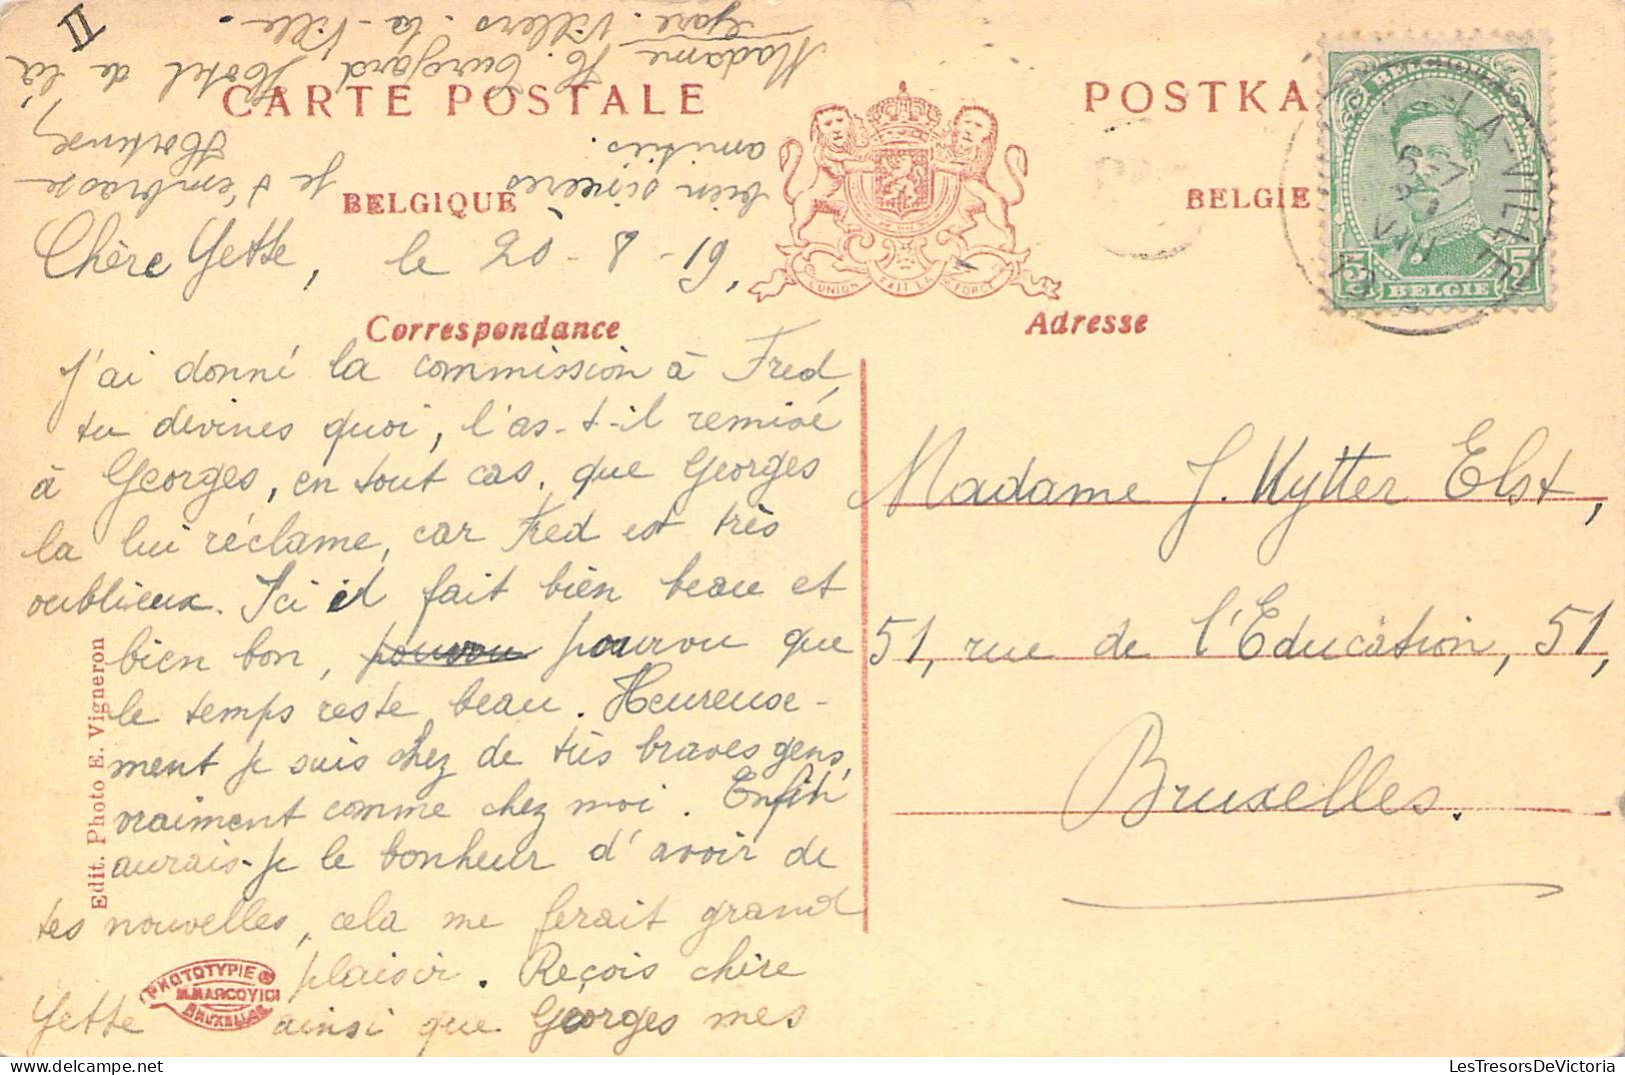 II
CARTE POSTALE
POSTKA
BELGIQUE
BELGIE
L'UNION FAIT LA FORCE
BELGIQUE
5 BELGIE 5
LA-VILLE
Chère Yette, le 20-8-19,
Correspondance
Adresse
J'ai donné la commission à Fred,
tu devines quoi, l'as-t-il remise
à Georges, en tout cas, que Georges
la lui réclame, car Fred est très
oublieux. Ici il fait bien beau et
bien bon, pourvou pourvou que
le temps reste beau. Heureuse-
ment je suis chez de très braves gens,
vraiment comme chez moi. Enfin
aurais-je le bonheur d'avoir de
tes nouvelles, cela me ferait grand
plaisir. Reçois chère
Yette ainsi que Georges mes
bien sincères
amitiés.
je t'embrasse
Hortense,
Madame H. Hôtel de la
Gare. Villers. la Ville.
Madame J. Kytter Elst,
51, rue de l'Education, 51,
Bruxelles.
Edit. Photo E. Vigneron
PHOTOTYPIE
M. MARCOVICI
BRUXELLES
LesTresorsDeVictoria